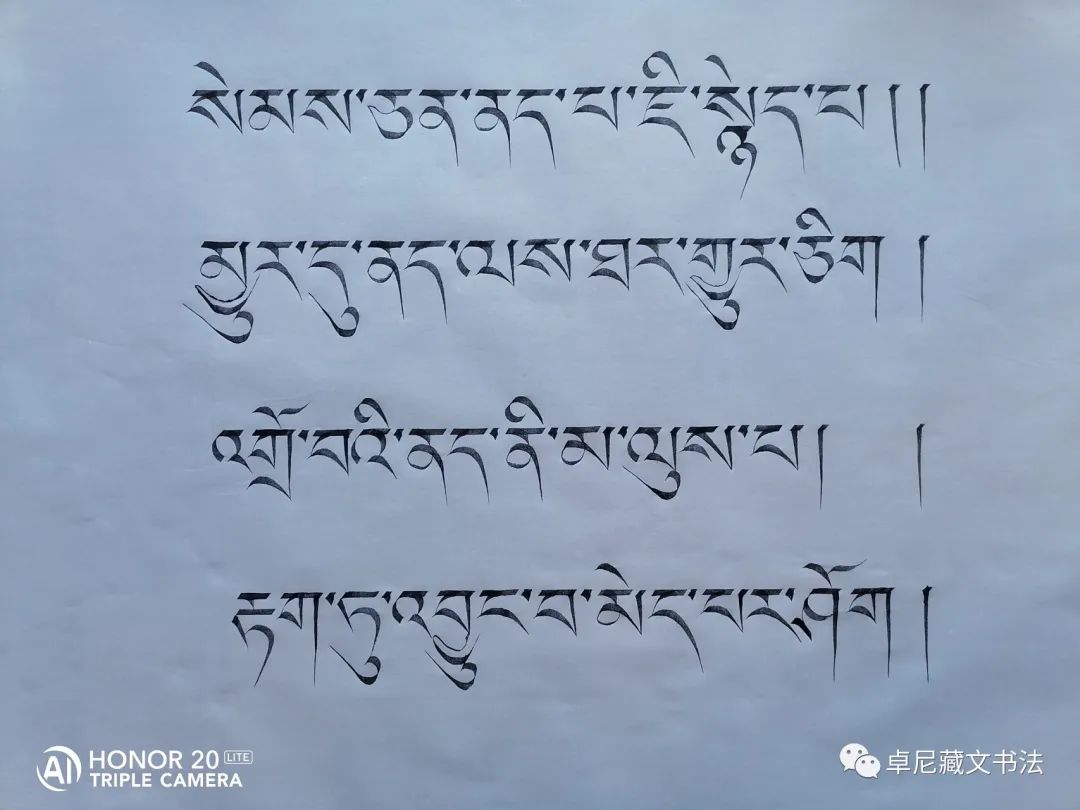 སེམས་ཅན་ནད་པ་ཇི་སྙེད་པ།།
མྱུར་དུ་ནད་ལས་ཐར་གྱུར་ཅིག །
འགྲོ་བའི་ནད་ནི་མ་ལུས་པ། །
རྟག་ཏུ་འབྱུང་བ་མེད་པར་ཤོག །
AI HONOR 20 LITE
TRIPLE CAMERA
卓尼藏文书法